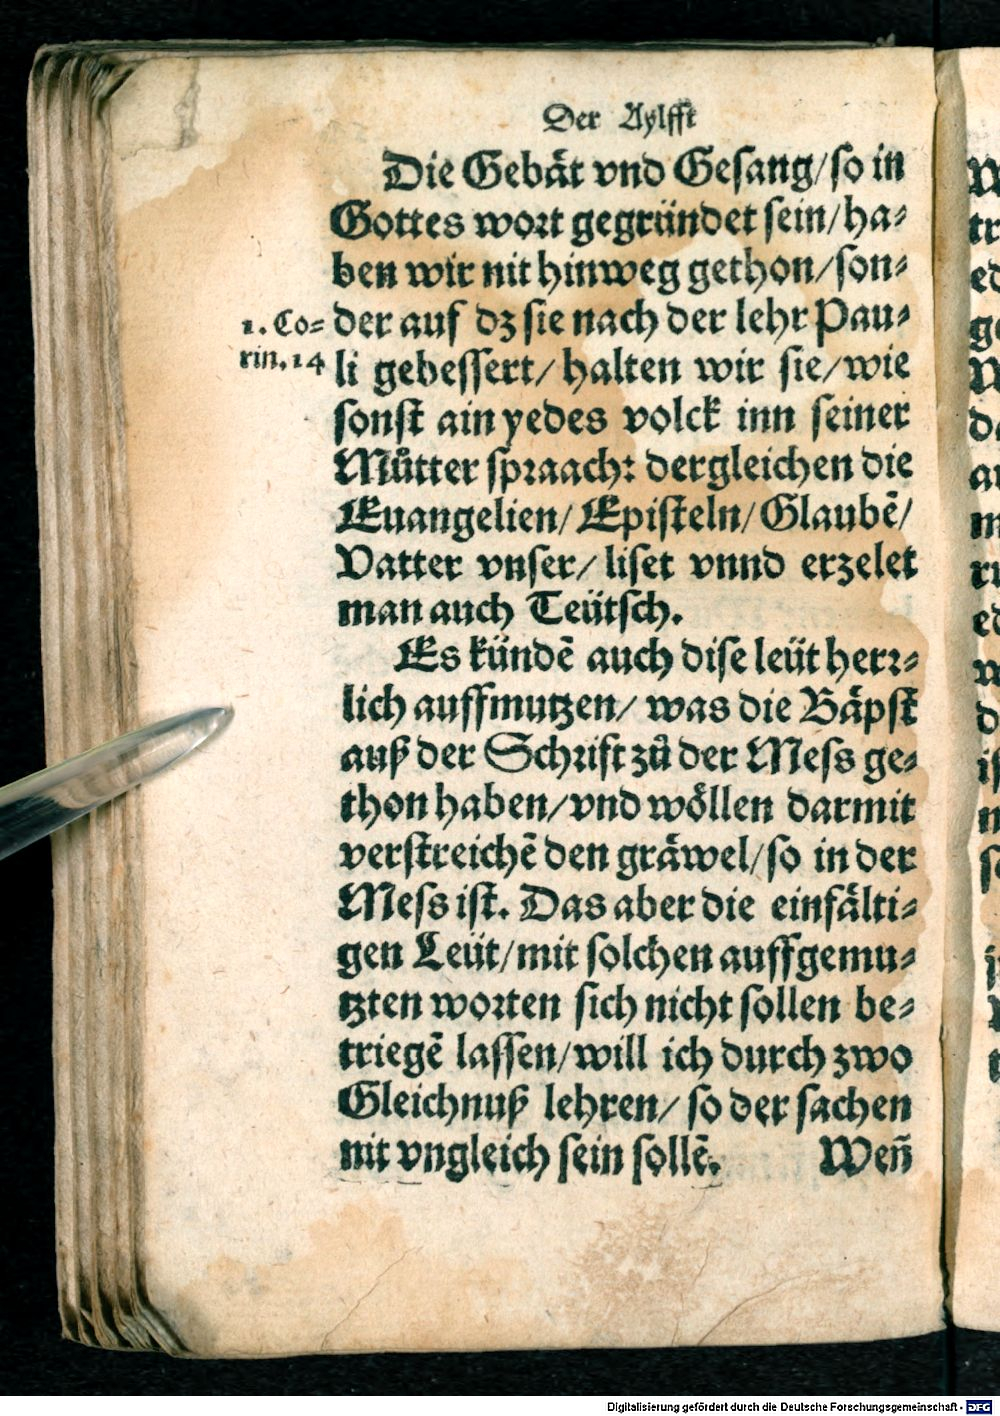 Der Aylfft
Die Gebät vnd Gesang/so in
Gottes wort gegründet sein/ha⸗
ben wir nit hinweg gethon/son⸗
1. Co⸗
der auf dz sie nach der lehr Pau⸗
rin. 14
li gebessert/ halten wir sie/wie
sonst ain yedes volck inn seiner
Můtter spraach: dergleichen die
Euangelien/ Episteln/ Glaubē/
Vatter vnser/ liset vnnd erzelet
man auch Teütsch.
Es kündē auch dise leüt herr⸗
lich auffmutzen/ was die Bäpst
auß der Schrift zů der Mess ge⸗
thon haben/vnd wöllen darmit
verstreichē den gräwel/so in der
Mess ist. Das aber die einfälti⸗
gen Leüt/mit solchen auffgemu⸗
tzten worten sich nicht sollen be⸗
triegē lassen/will ich durch zwo
Gleichnuß lehren/ so der sachen
nit vngleich sein sollē. Wen̄
Digitalisierung gefördert durch die Deutsche Forschungsgemeinschaft - DFG